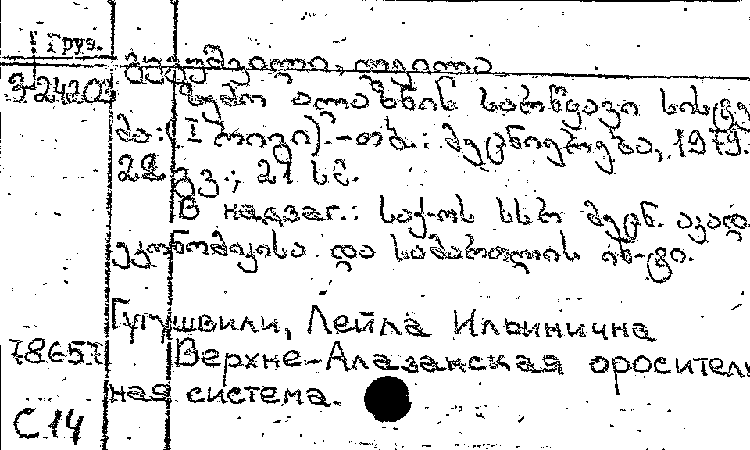 Груз.
გუგუშვილი, ლეილა
3-24203
ზემო ალაზნის სარწყავი სისტე-
მა: (I რიგი). - თბ.: მეცნიერება, 1979.
22 გვ.; 21 სმ.
В надзаг.: საქ-ოს სსრ მეცნ. აკად.
ეკონომიკისა და სამართლის ინ-ტი.
Гугушвили, Лейла Ильинична
78657 Верхне-Алазанская ороситель
ная система.
С 14